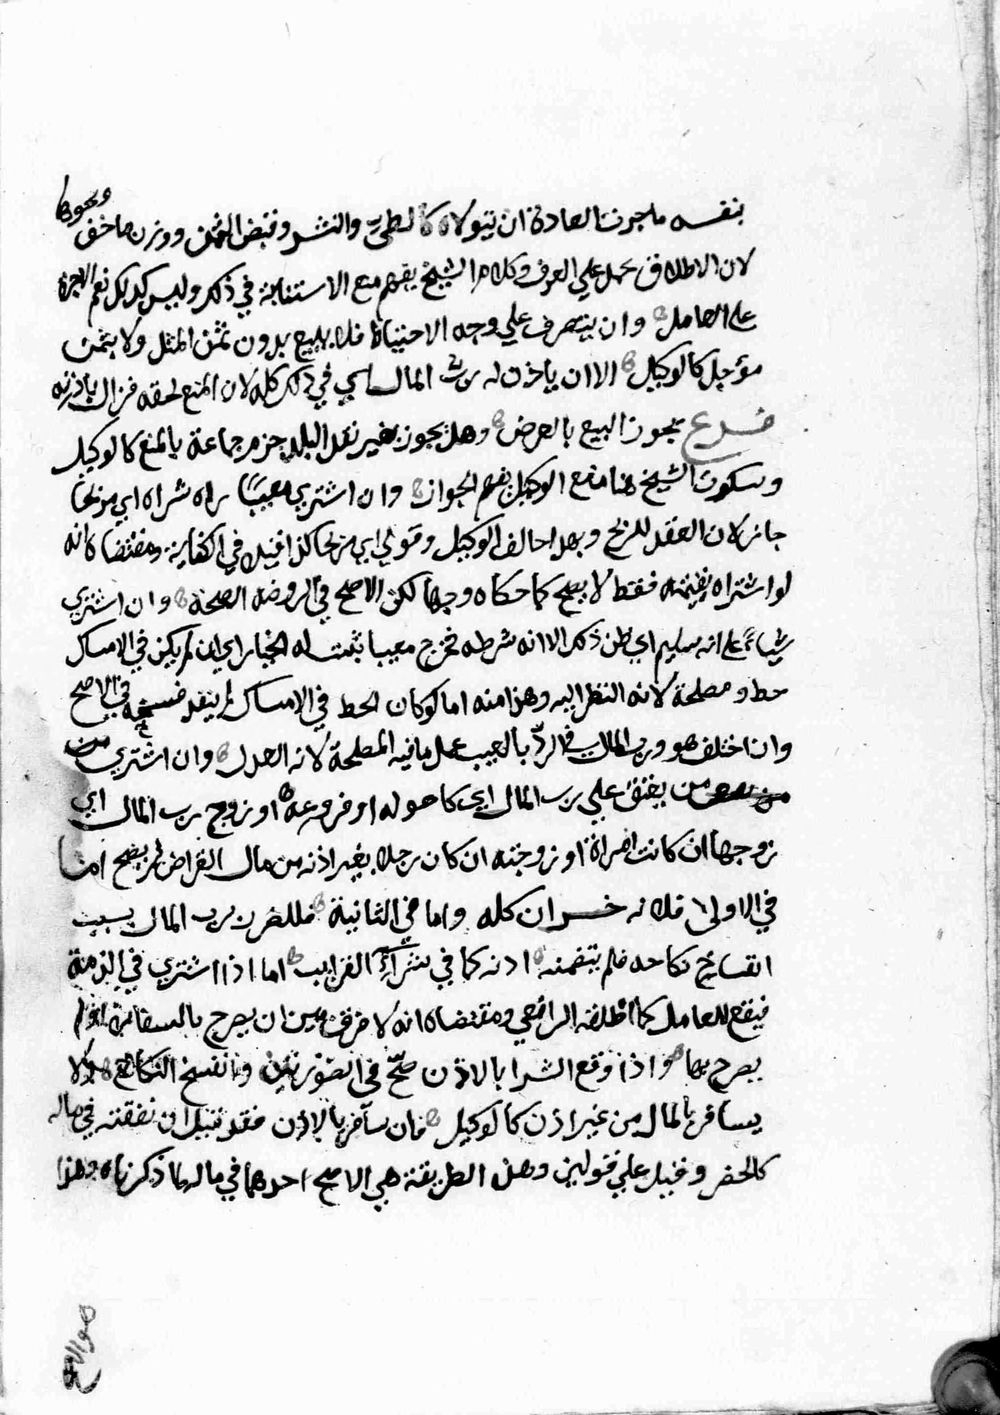 بنفسه ما جرت العادة ان يتولاه كالطيّ والنشر وقبض الثمن ووزن ما خف ونحوها
لان الاطلاق يحمل علي العرف وكلام الشيخ يفهم منع الاستنابة في ذلك وليس كذلك نعم الاجرة
علي العامل وان يتصرف علي وجه الاحتياط فلا يبيع بدون ثمن المثل ولا بثمن
مؤجل كالوكيل الا ان ياذن له رب المال اي في ذلك كله لان المنع لحقه فزال باذنه
فرع يجوز البيع بالعرض وهل يجوز بغير نقد البلد جزم جماعة بالمنع كالوكيل
وسكوت الشيخ هنا مع الوكيل يفهم الجواز وان اشتري معيبًا راه شراه اي مربحًا
جاز لان العقد للربح وبهذا خالف الوكيل وقولي اي مربحا كذا قيل في الكفاية ومقتضاه انه
لو اشتراه بقيمته فقط لا يصح كما حكاه وجها لكن الاصح في الروضة الصحة وان اشتري
شياءً علي انه سليم اي ظن ذلك الا انه شرطه فخرج معيبا ثبت له الخيار اي ان لم يكن في الامساك
حط ومصلحة لانه النظر اليه وهذا منه اما لو كان الحط في الامساك لم ينفذ فسخه في الاصح
وان اختلف هو ورب المال في الردّ بالعيب عمل ما فيه المصلحة لانه العدل وان اشتري من
يعتق علي رب المال اي كاصوله او فروعه او زوج رب المال اي
زوجها ان كانت امراة او زوجته ان كان رجلا بغير اذنه من مال القراض لم يصح اما
في الاولي فلانه خسران كله واما في الثانية فللضرر برب المال بسبب
انفساخ نكاحه فلم يتضمنه اذنه كما في شرآء القرايب اما اذا اشتري في الذمة
فيقع للعامل كما اطلقه الرافعي ومقتضاه انه لا فرق بين ان يصرح بالسفارة ام لم
يصرح بها واذا وقع الشرا بالاذن صحّ في الصورتين وانفسخ النكاح ولا
يسافر بالمال من غير اذن كالوكيل فان سافر بالاذن فقد قيل ان نفقته في ماله
كالحضر وقيل علي قولين وهذه الطريقة هي الاصح احدهما في ماله لما ذكرناه وهذا